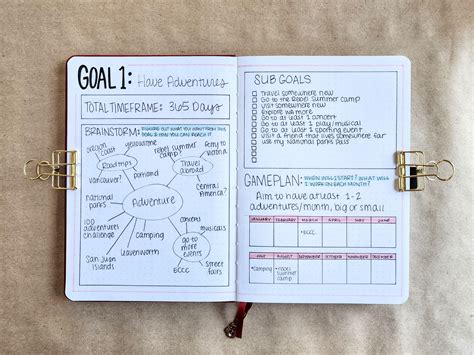 GOAL 1: Have Adventures
TOTAL TIMEFRAME: 365 Days
BRAINSTORM: FIGURE OUT WHAT YOU WANT FROM THIS
GOAL & HOW YOU CAN REACH IT
oregon coast
yellowstone
Roadtrips
vancouver?
portland
europe
ferry to victoria
Travel abroad
central America?
Adventure
100 adventures challenge
San Juan Islands
camping
leavenworth
concerts
musicals
go to more events
ECCC
street fairs
SUB GOALS
Travel somewhere new
Go to the Rebel Summer camp
Visit somewhere new
Explore WA more
Go to at least 1 concert
Go to at least 1 play/musical
Go to at least 1 sporting event
Visit a friend that lives somewhere far
Use my National Parks Pass
GAMEPLAN: WHEN WILL I START? WHAT WILL
I WORK ON EACH MONTH?
Aim to have at least 1-2
adventures/month, big or small
JANUARY FEBRUARY MARCH APRIL MAY JUNE
-ECCC
JULY AUGUST SEPTEMBER OCTOBER NOVEMBER DECEMBER
-camping -rebel summer camp